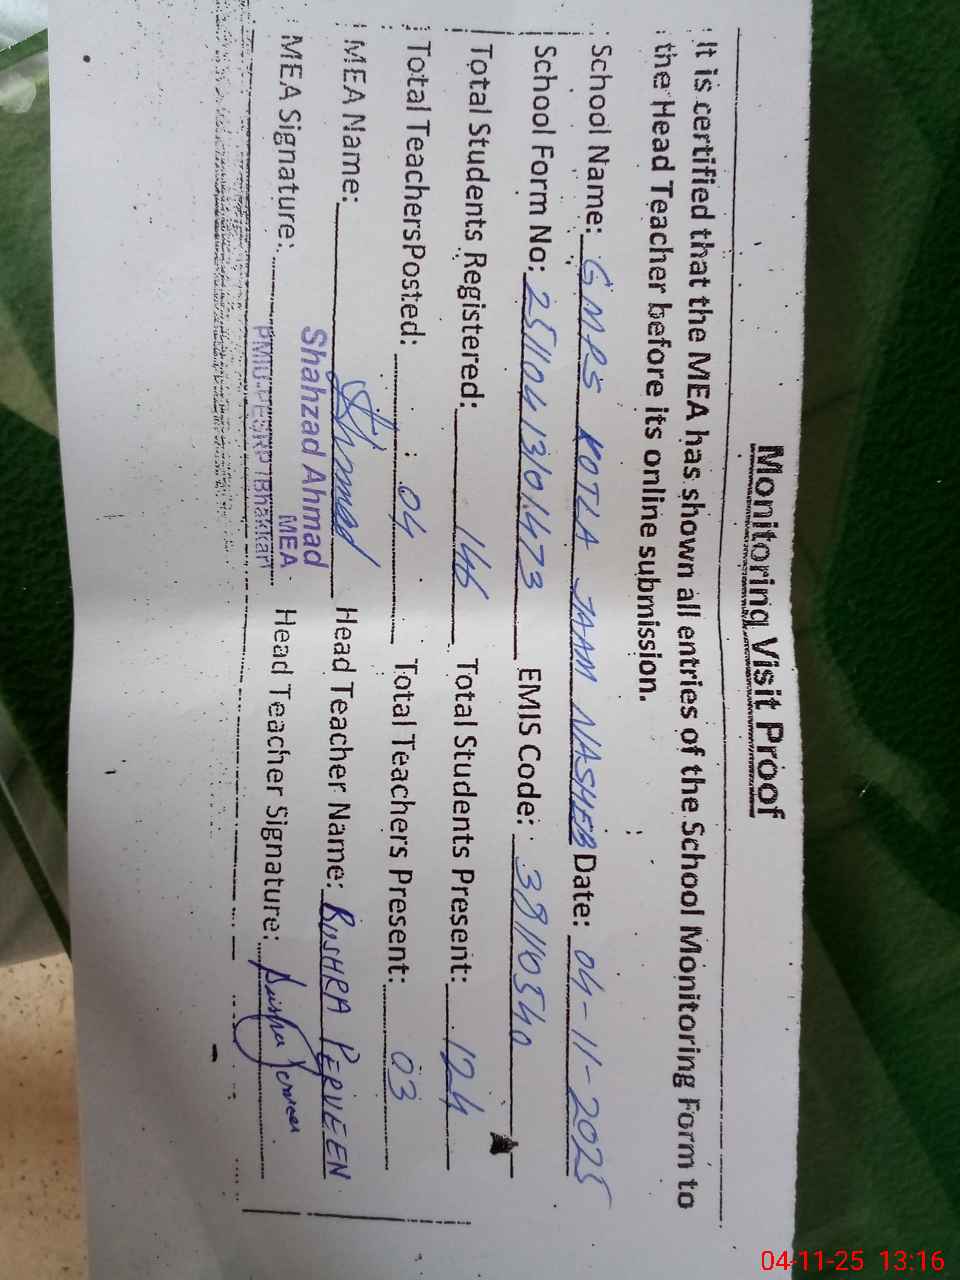 Monitoring Visit Proof
It is certified that the MEA has shown all entries of the School Monitoring Form to
the Head Teacher before its online submission.
School Name: GMPS KOTLA JAAM NASHEB Date: 04-11-2025
School Form No: 2511041301473 EMIS Code: 38110340
Total Students Registered: 146 Total Students Present: 124
Total Teachers Posted: 04 Total Teachers Present: 03
MEA Name: Ahmad Head Teacher Name: BUSHRA PERVEEN
Shahzad Ahmad
MEA
MEA Signature: PMIU-PESRP (Bhakkar) Head Teacher Signature:
04-11-25 13:16